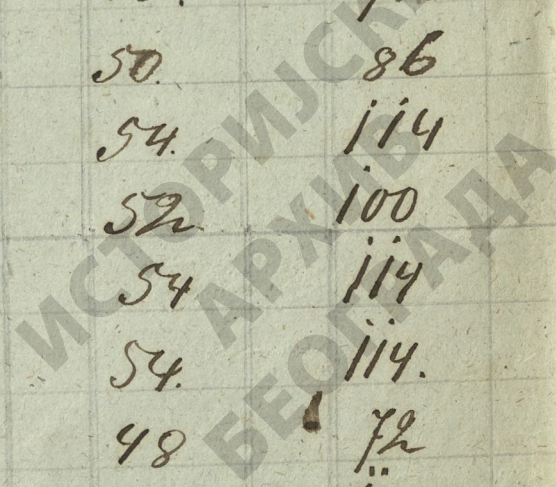 50. 86
54. 114
52. 100
54 114
54. 114.
48 72
ИСТОРИЈСКИ
АРХИВ
БЕОГРАДА